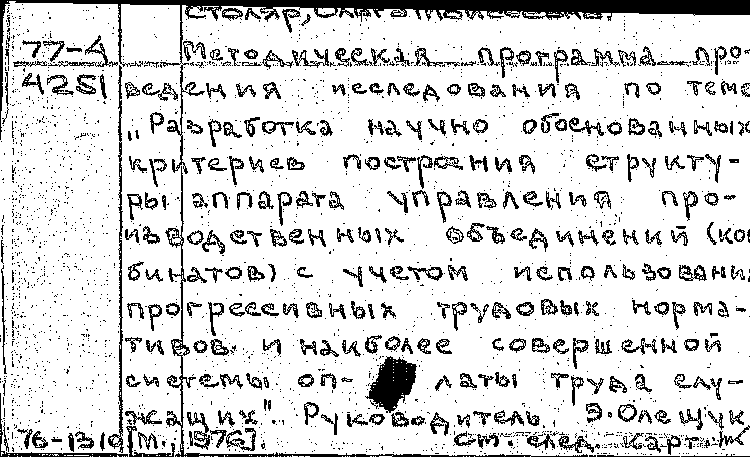 Столяр, Ольга Моисеевна.
77-4 Методическая программа про-
4251 ведения исследования по теме
„Разработка научно обоснованных
критериев построения структу-
ры аппарата управления про-
изводственных объединений (ком
бинатов) с учетом использования
прогрессивных трудовых норма-
тивов и наиболее совершенной
системы оп- латы труда слу-
жащих". Руководитель Э.Олещук
76-1310 [М., 1976]. См. след. карт.